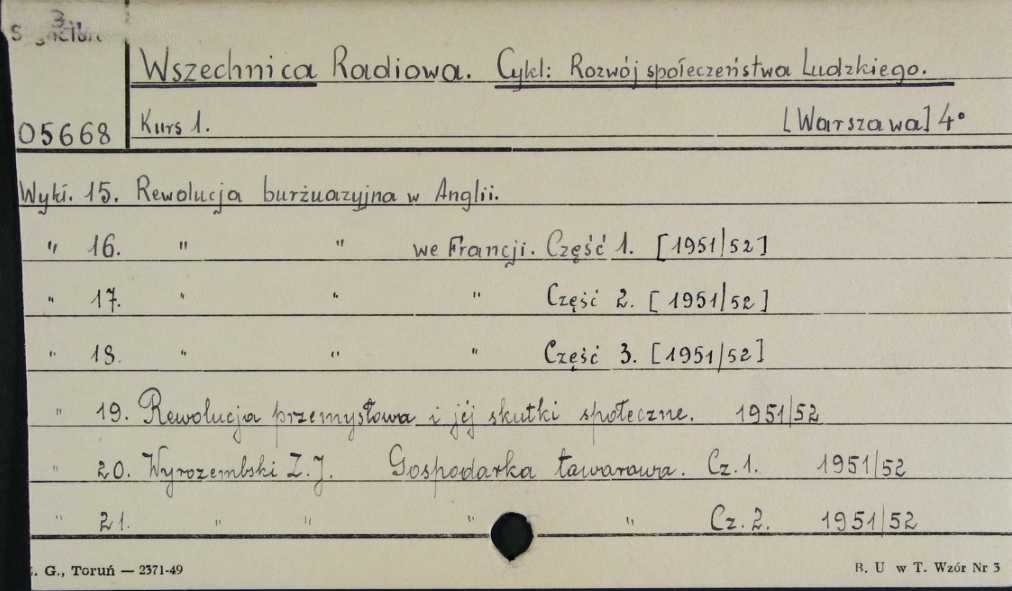 3.
Wszechnica Radiowa. Cykl: Rozwój społeczeństwa Ludzkiego.
05668 Kurs 1. [Warszawa] 4°
Wykł. 15. Rewolucja burżuazyjna w Anglii.
" 16. " " we Francji. Część 1. [1951/52]
" 17. " " " Część 2. [1951/52]
" 18. " " " Część 3. [1951/52]
" 19. Rewolucja przemysłowa i jej skutki społeczne. 1951/52
" 20. Wyrozembski Z. J. Gospodarka towarowa. Cz. 1. 1951/52
" 21. " " " " Cz. 2. 1951/52
. G., Toruń — 2371-49 B. U w T. Wzór Nr 3